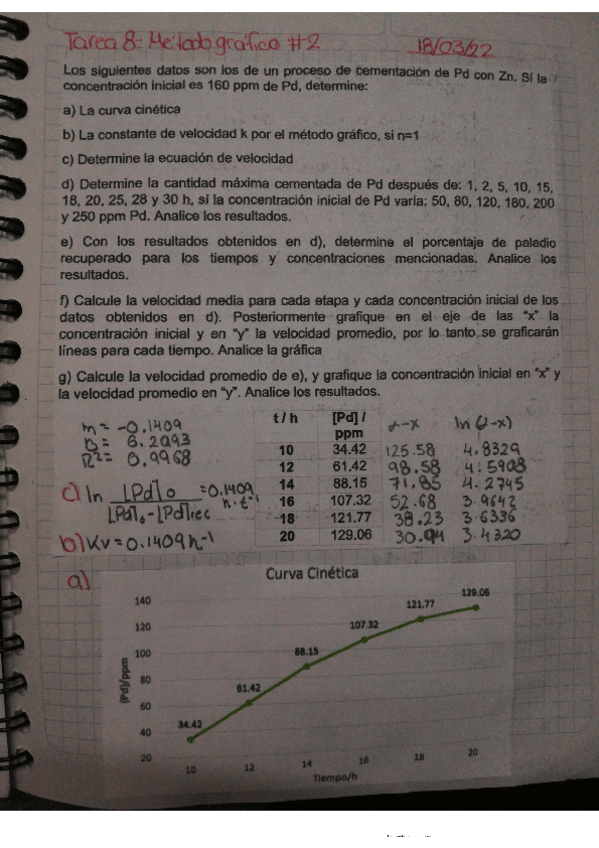 Tarea 8: Método gráfico #2 18/03/22
Los siguientes datos son los de un proceso de cementación de Pd con Zn. Sí la
concentración inicial es 160 ppm de Pd, determine:
a) La curva cinética
b) La constante de velocidad k por el método gráfico, si n=1
c) Determine la ecuación de velocidad
d) Determine la cantidad máxima cementada de Pd después de: 1, 2, 5, 10, 15,
18, 20, 25, 28 y 30 h, sí la concentración inicial de Pd varía: 50, 80, 120, 180, 200
y 250 ppm Pd. Analice los resultados.
e) Con los resultados obtenidos en d), determine el porcentaje de paladio
recuperado para los tiempos y concentraciones mencionadas. Analice los
resultados.
f) Calcule la velocidad media para cada etapa y cada concentración inicial de los
datos obtenidos en d). Posteriormente grafique en el eje de las "x" la
concentración inicial y en "y" la velocidad promedio, por lo tanto se graficarán
líneas para cada tiempo. Analice la gráfica
g) Calcule la velocidad promedio de e), y grafique la concentración inicial en "x" y
la velocidad promedio en "y". Analice los resultados.
m = -0.1409
b = 6.2093
R²= 0.9968
c) ln [Pd]o / [Pd]o-[Pd]rec = 0.1409 h⁻¹ · t
b) Kv = 0.1409 h-1
t / h [Pd] / ppm α-x ln (α-x)
10 34.42 125.58 4.8329
12 61.42 98.58 4.5908
14 88.15 71.85 4.2745
16 107.32 52.68 3.9642
18 121.77 38.23 3.6336
20 129.06 30.94 3.4320
a)
Curva Cinética
[Pd]/ppm
140
120
100
80
60
40
20
34.42
61.42
88.15
107.32
121.77
129.06
10 12 14 16 18 20
Tiempo/h